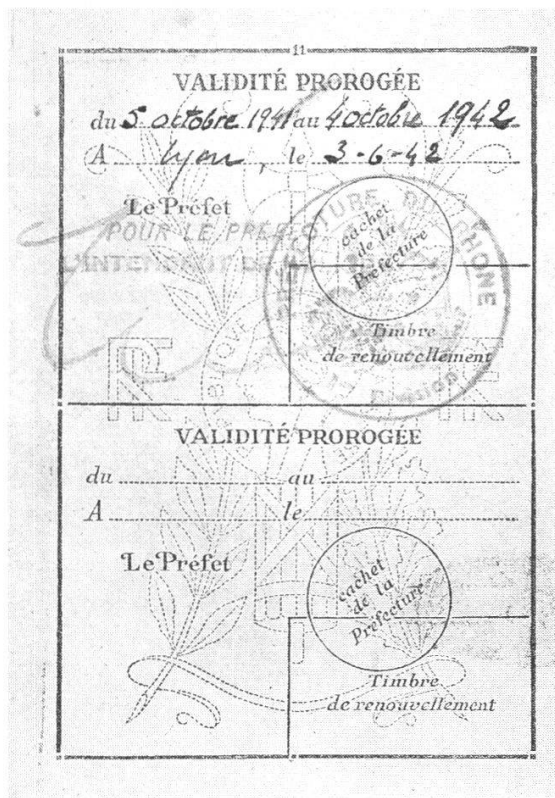 11
VALIDITÉ PROROGÉE
du 5 octobre 1941 au 4 octobre 1942
A Lyon, le 3-6-42
Le Préfet
POUR LE PRÉFET
L'INTENDANT DE
cachet
de la
Préfecture
PRÉFECTURE DU RHONE
Division
Timbre
de renouvellement
RF
RF
VALIDITÉ PROROGÉE
du au
A le
Le Préfet
cachet
de la
Préfecture
Timbre
de renouvellement